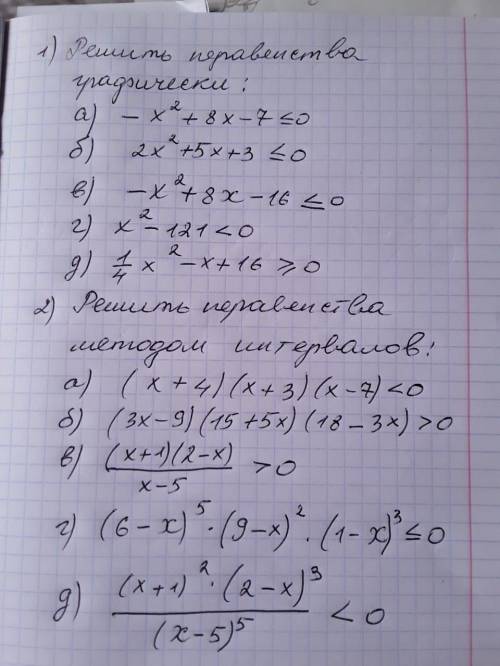 1) Решить неравенства
графически:
а) - x² + 8x - 7 ≤ 0
б) 2x² + 5x + 3 ≤ 0
в) - x² + 8x - 16 ≤ 0
г) x² - 121 < 0
д) 1/4 x² - x + 16 ≥ 0
2) Решить неравенства
методом интервалов:
а) (x + 4)(x + 3)(x - 7) < 0
б) (3x - 9)(15 + 5x)(18 - 3x) > 0
в) (x+1)(2-x) / x-5 > 0
г) (6 - x)⁵ · (9 - x)² · (1 - x)³ ≤ 0
д) (x+1)² · (2 - x)³ / (x - 5)⁵ < 0